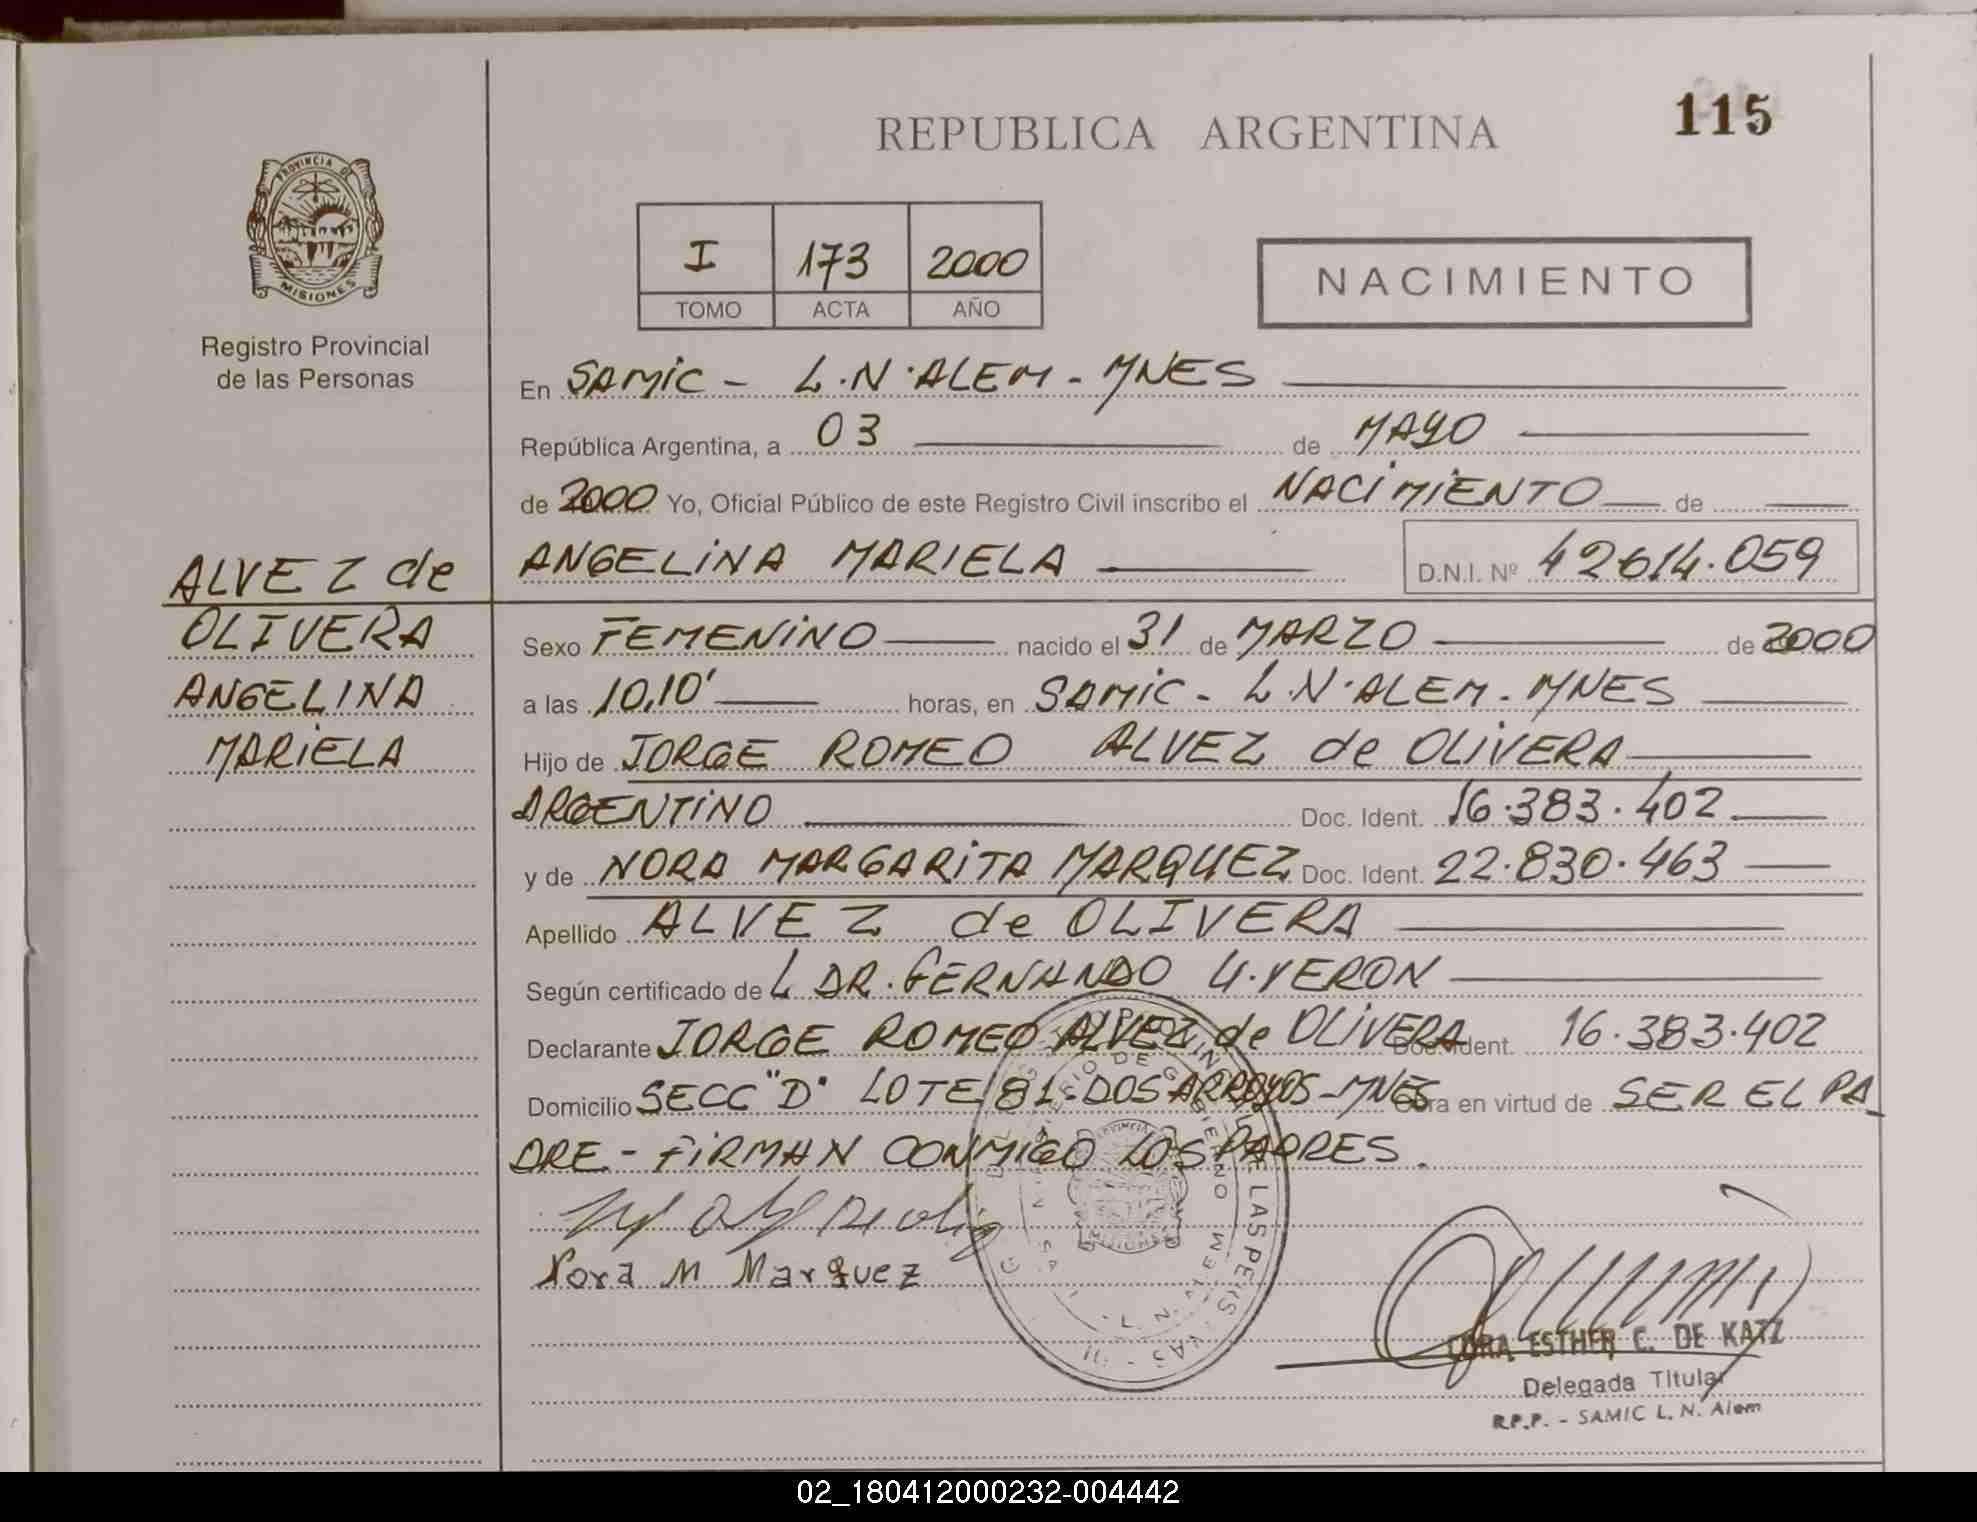 REPUBLICA ARGENTINA
115
PROVINCIA DE
MISIONES
Registro Provincial
de las Personas
I 173 2000
TOMO ACTA AÑO
NACIMIENTO
En SAMIC - L.N.ALEM - MNES
República Argentina, a 03 de MAYO
de 2000 Yo, Oficial Público de este Registro Civil inscribo el NACIMIENTO de
ANGELINA MARIELA D.N.I. Nº 42614.059
ALVEZ de
OLIVERA
ANGELINA
MARIELA
Sexo FEMENINO nacido el 31 de MARZO de 2000
a las 10,10' horas, en SAMIC - L.N.ALEM - MNES
Hijo de JORGE ROMEO ALVEZ de OLIVERA
ARGENTINO Doc. Ident. 16.383.402
y de NORA MARGARITA MARQUEZ Doc. Ident. 22.830.463
Apellido ALVEZ de OLIVERA
Según certificado de L DR. FERNANDO U. VERON
Declarante JORGE ROMEO ALVEZ de OLIVERA Doc. Ident. 16.383.402
Domicilio SECC "D" LOTE 81-DOS ARROYOS-MNES Obra en virtud de SER EL PA_
DRE - FIRMAN CONMIGO LOS PADRES.
Nora M Marquez
CORA ESTHER C. DE KATZ
Delegada Titular
R.P.P. - SAMIC L. N. Alem
02_180412000232-004442